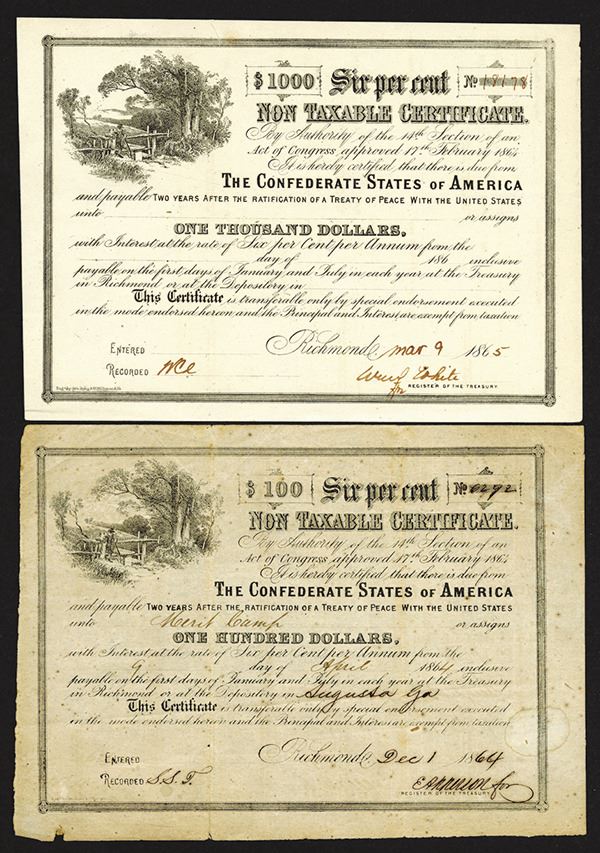 $1000 Six per cent No 18178
NON TAXABLE CERTIFICATE.
By Authority of the 14th Section of an
Act of Congress approved 17th February 1864
It is hereby certified, that there is due from
THE CONFEDERATE STATES OF AMERICA
and payable TWO YEARS AFTER THE RATIFICATION OF A TREATY OF PEACE WITH THE UNITED STATES
unto or assigns
ONE THOUSAND DOLLARS,
with Interest at the rate of Six per Cent per Annum from the
day of 186 inclusive
payable on the first days of January and July in each year at the Treasury
in Richmond or at the Depository in
This Certificate is transferable only by special endorsement executed
in the mode endorsed hereon and the Principal and Interest are exempt from taxation
Richmond Mar 9 1865
ENTERED
RECORDED
REGISTER OF THE TREASURY
$100 Six per cent No 6292
NON TAXABLE CERTIFICATE.
By Authority of the 14th Section of an
Act of Congress approved 17th February 1864
It is hereby certified, that there is due from
THE CONFEDERATE STATES OF AMERICA
and payable TWO YEARS AFTER THE RATIFICATION OF A TREATY OF PEACE WITH THE UNITED STATES
unto Merit Camp or assigns
ONE HUNDRED DOLLARS,
with Interest at the rate of Six per Cent per Annum from the
9 day of April 1864 inclusive
payable on the first days of January and July in each year at the Treasury
in Richmond or at the Depository in Augusta Ga
This Certificate is transferable only by special endorsement executed
in the mode endorsed hereon and the Principal and Interest are exempt from taxation
Richmond Dec 1 1864
ENTERED
RECORDED S.S.T.
for
REGISTER OF THE TREASURY